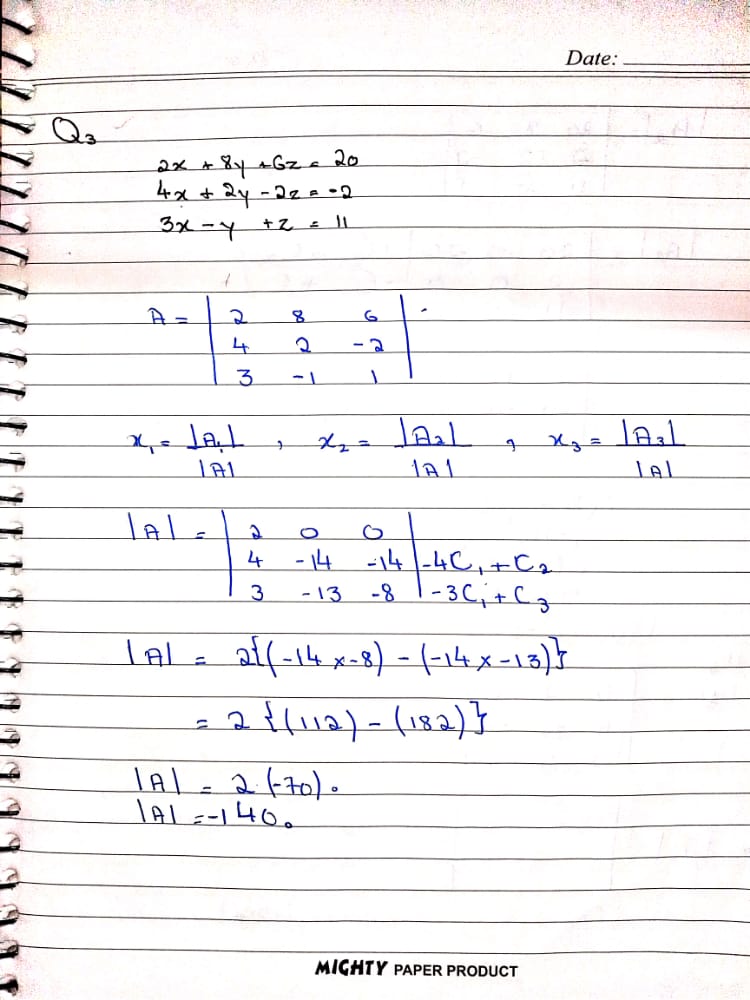 Date:
Q3
2x + 8y + 6z = 20
4x + 2y - 2z = -2
3x - y + z = 11
A = | 2 8 6 |
4 2 -2
3 -1 1
x₁ = |A₁| / |A| , x₂ = |A₂| / |A| , x₃ = |A₃| / |A|
|A| = | 2 0 0 |
4 -14 -14 | -4C₁ + C₂
3 -13 -8 | -3C₁ + C₃
|A| = 2{(-14 x -8) - (-14 x -13)}
= 2 {(112) - (182)}
|A| = 2 (-70).
|A| = -140.
MIGHTY PAPER PRODUCT